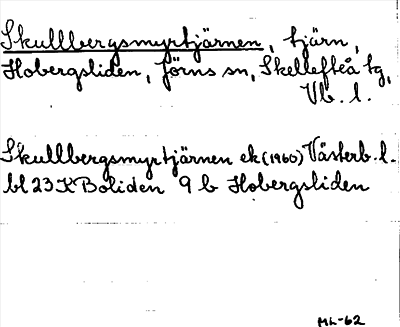 Skullbergsmyrtjärnen, tjärn,
Hobergsliden, Jörns sn, Skellefteå tg,
Vb. l.
Skullbergsmyrtjärnen ek (1960) Västerb. l.
bl 23 K Boliden 9 b Hobergsliden
ML-62